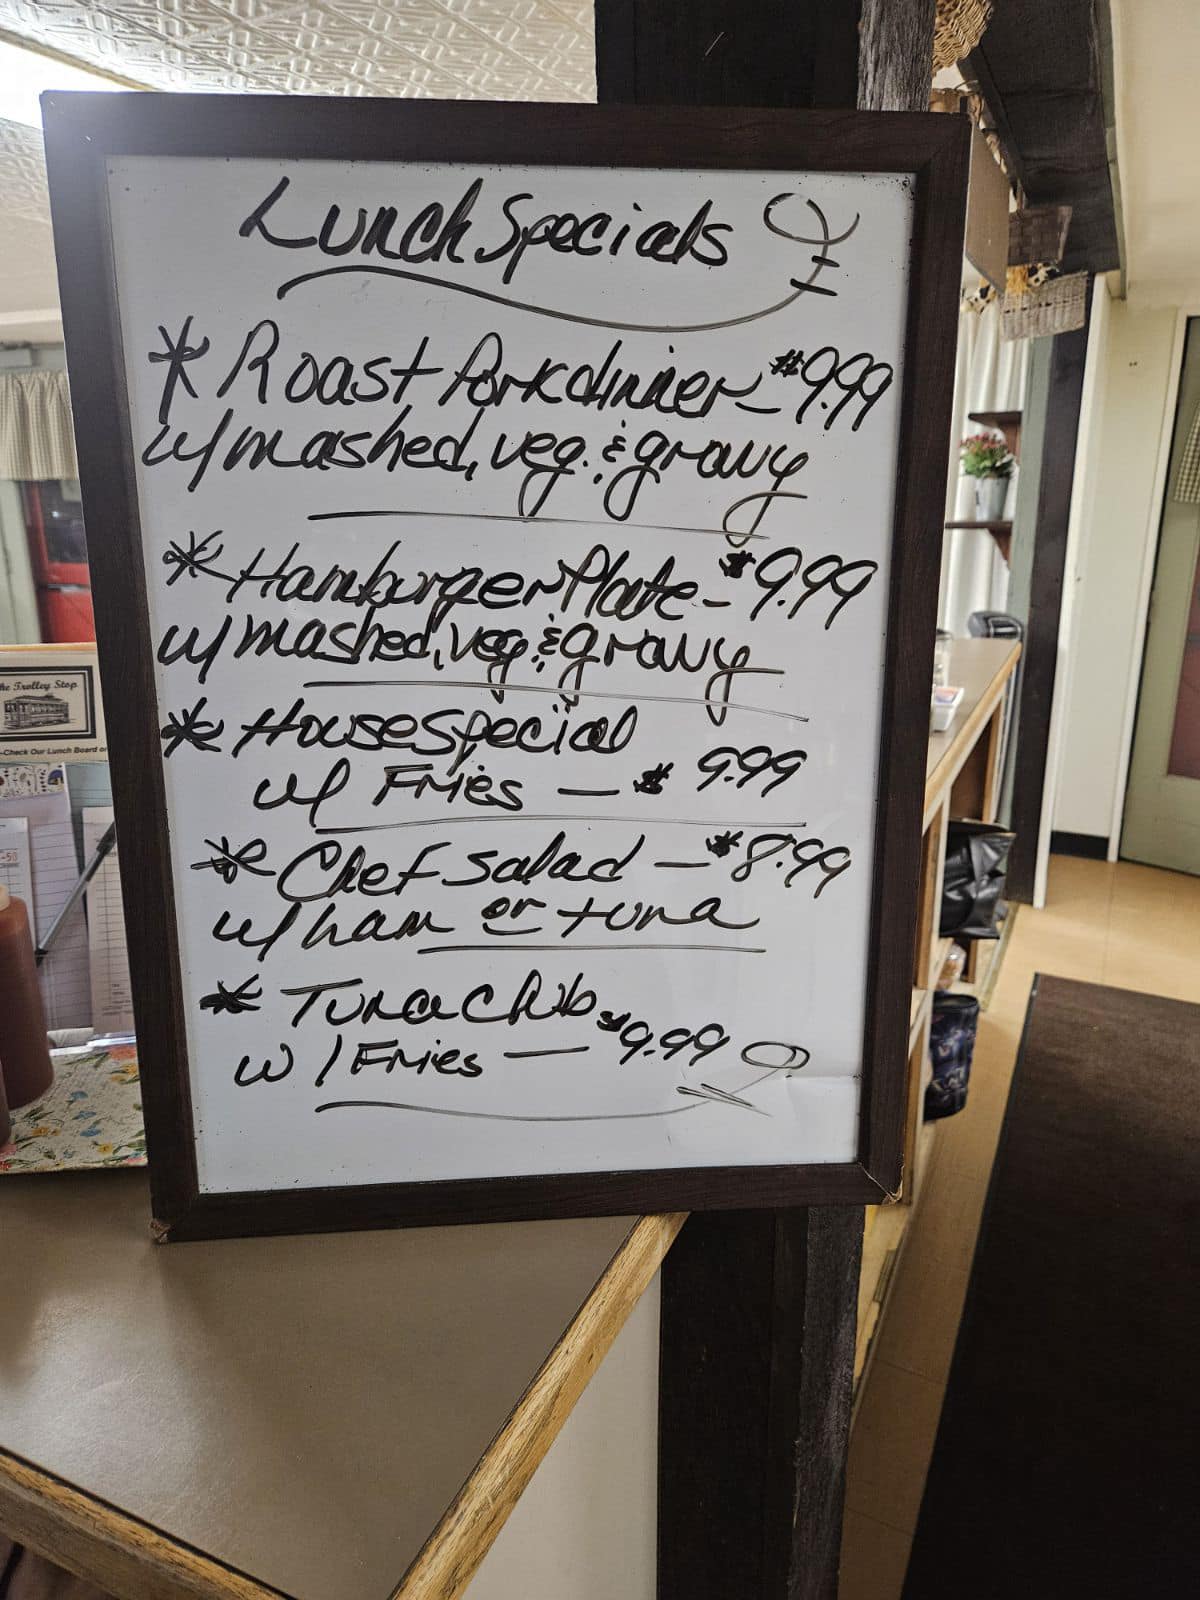 Lunch Specials
* Roast Pork dinner - $9.99
w/ mashed, veg. & gravy
* Hamburger Plate - $9.99
w/ mashed, veg & gravy
* House special
w/ Fries — $9.99
* Chef salad — $8.99
w/ ham or tuna
* Tuna Club
w/ Fries — $9.99
The Trolley Stop
-Check Our Lunch Board